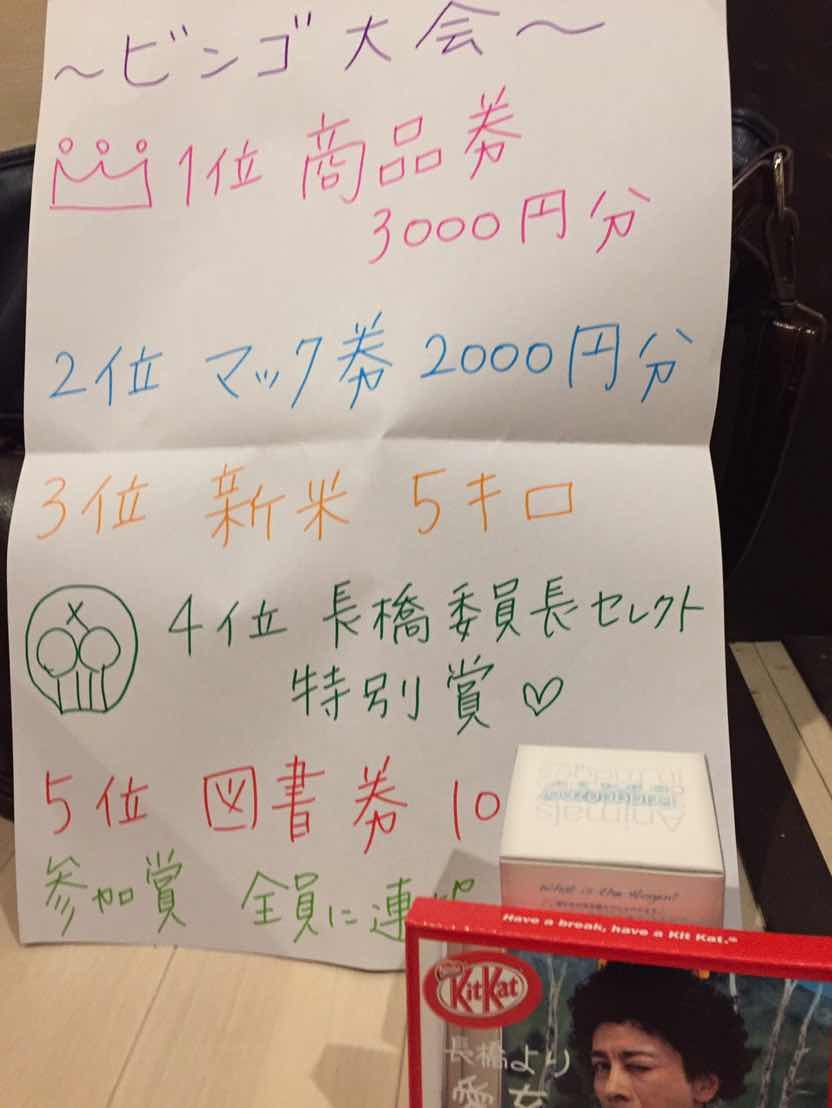 ～ビンゴ大会～
1位 商品券
3000円分
2位 マック券 2000円分
3位 新米 5キロ
4位 長橋委員長セレクト
特別賞♡
5位 図書券 10
参加賞 全員に連
Animals
What is the Wagon?
Have a break, have a Kit Kat.
Nestlé
KitKat
長橋より
愛を